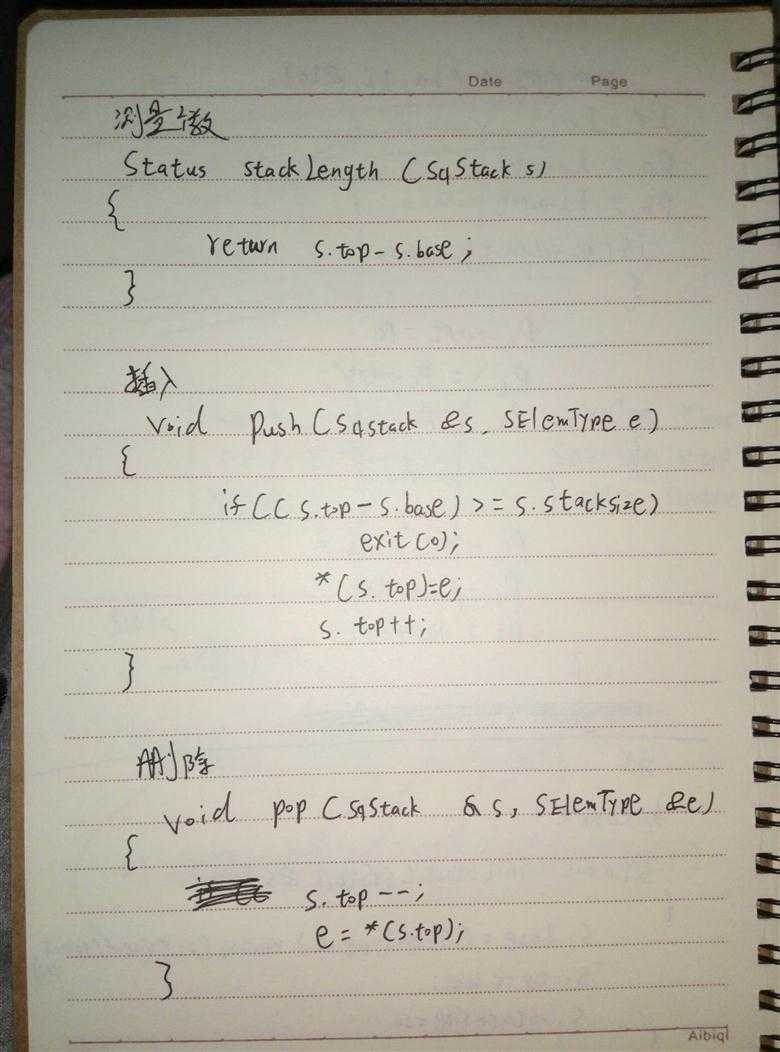 Date Page
测量个数
Status stackLength (SqStack s)
{
return s.top-s.base;
}
插入
void push(Sqstack &s, SElemType e)
{
if((s.top-s.base)>=s.stacksize)
exit(0);
*(s.top)=e;
s.top++;
}
删除
void pop(SqStack &s, SElemType &e)
{
s.top--;
e=*(s.top);
}
Aibiqi